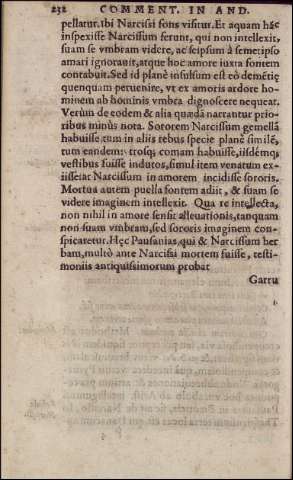 232 COMMENT. IN AND.
pellatur. Ibi Narcisi fons visitur. Et aquam hāc
inspexisse Narcissum ferunt, qui non intellexit,
suam se vmbram videre, ac seipsum à semetipso
amari ignorauit, atque hoc amore iuxta fontem
contabuit. Sed id planè insulsum est eò demētię
quenquam peruenire, vt ex amoris ardore ho-
minem ab hominis vmbra dignoscere nequeat.
Verùm de eodem & alia quædā narrantur prio-
ribus minùs nota. Sororem Narcissum gemellā
habuisse cum in aliis rebus specie planè similē,
tum eandem vtrosq; comam habuisse, iisdémq;
vestibus fuisse indutos, simul item venatum ex-
iisse: at Narcissum in amorem incidisse sororis.
Mortua autem puella fontem adiit, & suam se
videre imaginem intellexit. Qua re intellecta,
non nihil in amore sensit alleuationis, tanquam
non suam vmbram, sed sororis imaginem con-
spicaretur. Hęc Pausanias, qui & Narcissum her
bam, multò ante Narcissi mortem fuisse, testi-
moniis antiquissimorum probat
Garru